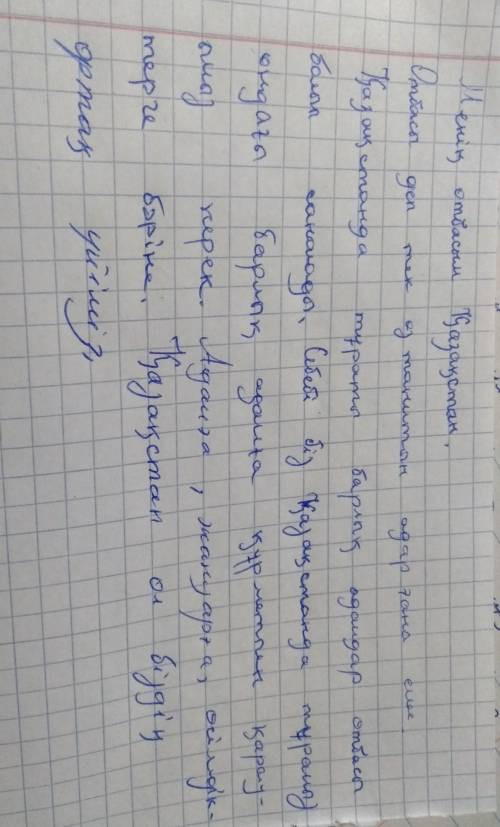 Менің отбасым Қазақстан.
Отбасы деп тек өз танитын адар ғана емес.
Қазақстанда тұраты барлық адамдар отбасы
балып саналады. Себебі біз Қазақстанда тұрамыз
ондағы барлық адамға құрметпен қарау-
ымыз керек. Адамға, жануарға, өсімдік-
терге бәріне. Қазақстан ол біздің
ортақ үйіміз,,